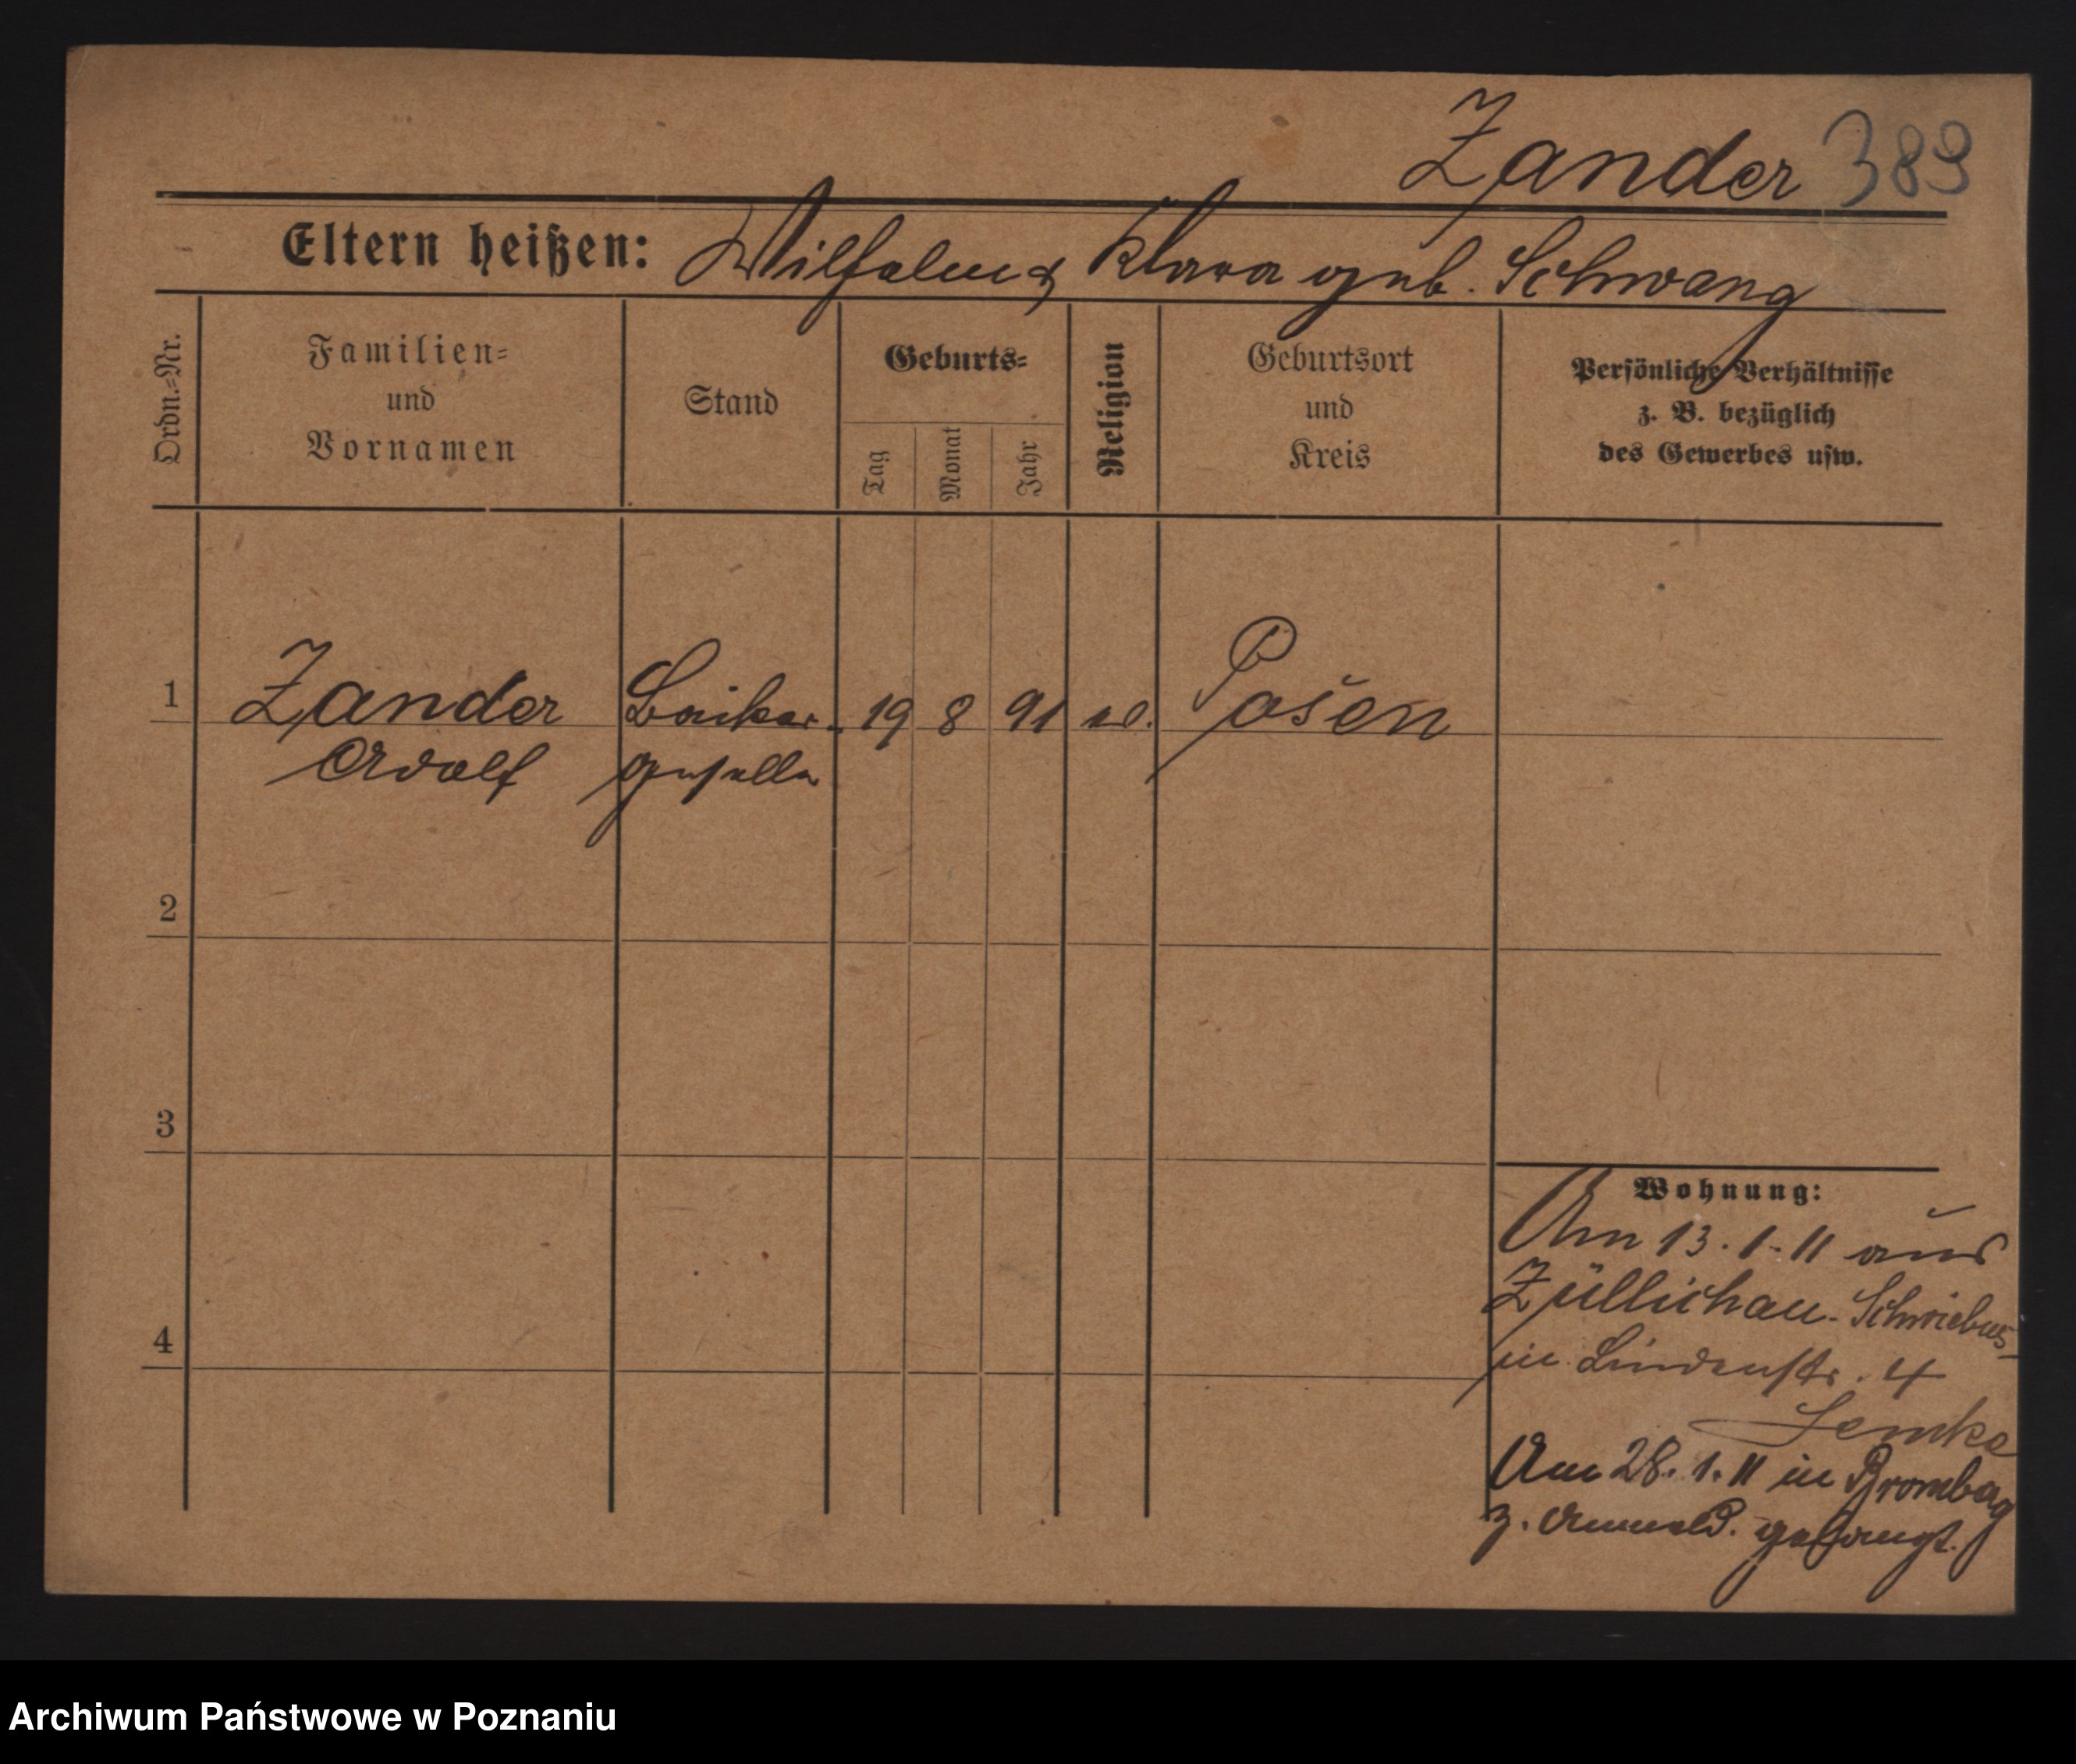 Zander 389
Eltern heißen: Wilhelm & Klara geb. Schwang
Ordn.-Nr.
Familien-
und
Vornamen
Stand
Geburts-
Tag
Monat
Jahr
Religion
Geburtsort
und
Kreis
Persönliche Verhältnisse
z. B. bezüglich
des Gewerbes usw.
1 Zander Bäcker- 19 8 91 Posen
Adolf geselle
2
3
4
Wohnung:
Am 13.1.11 aus
Züllichau-Schwiebus
in Lindenstr. 4
Lemke
Am 28.1.11 in Bromberg
z. Anmeld. gelangt.
Archiwum Państwowe w Poznaniu